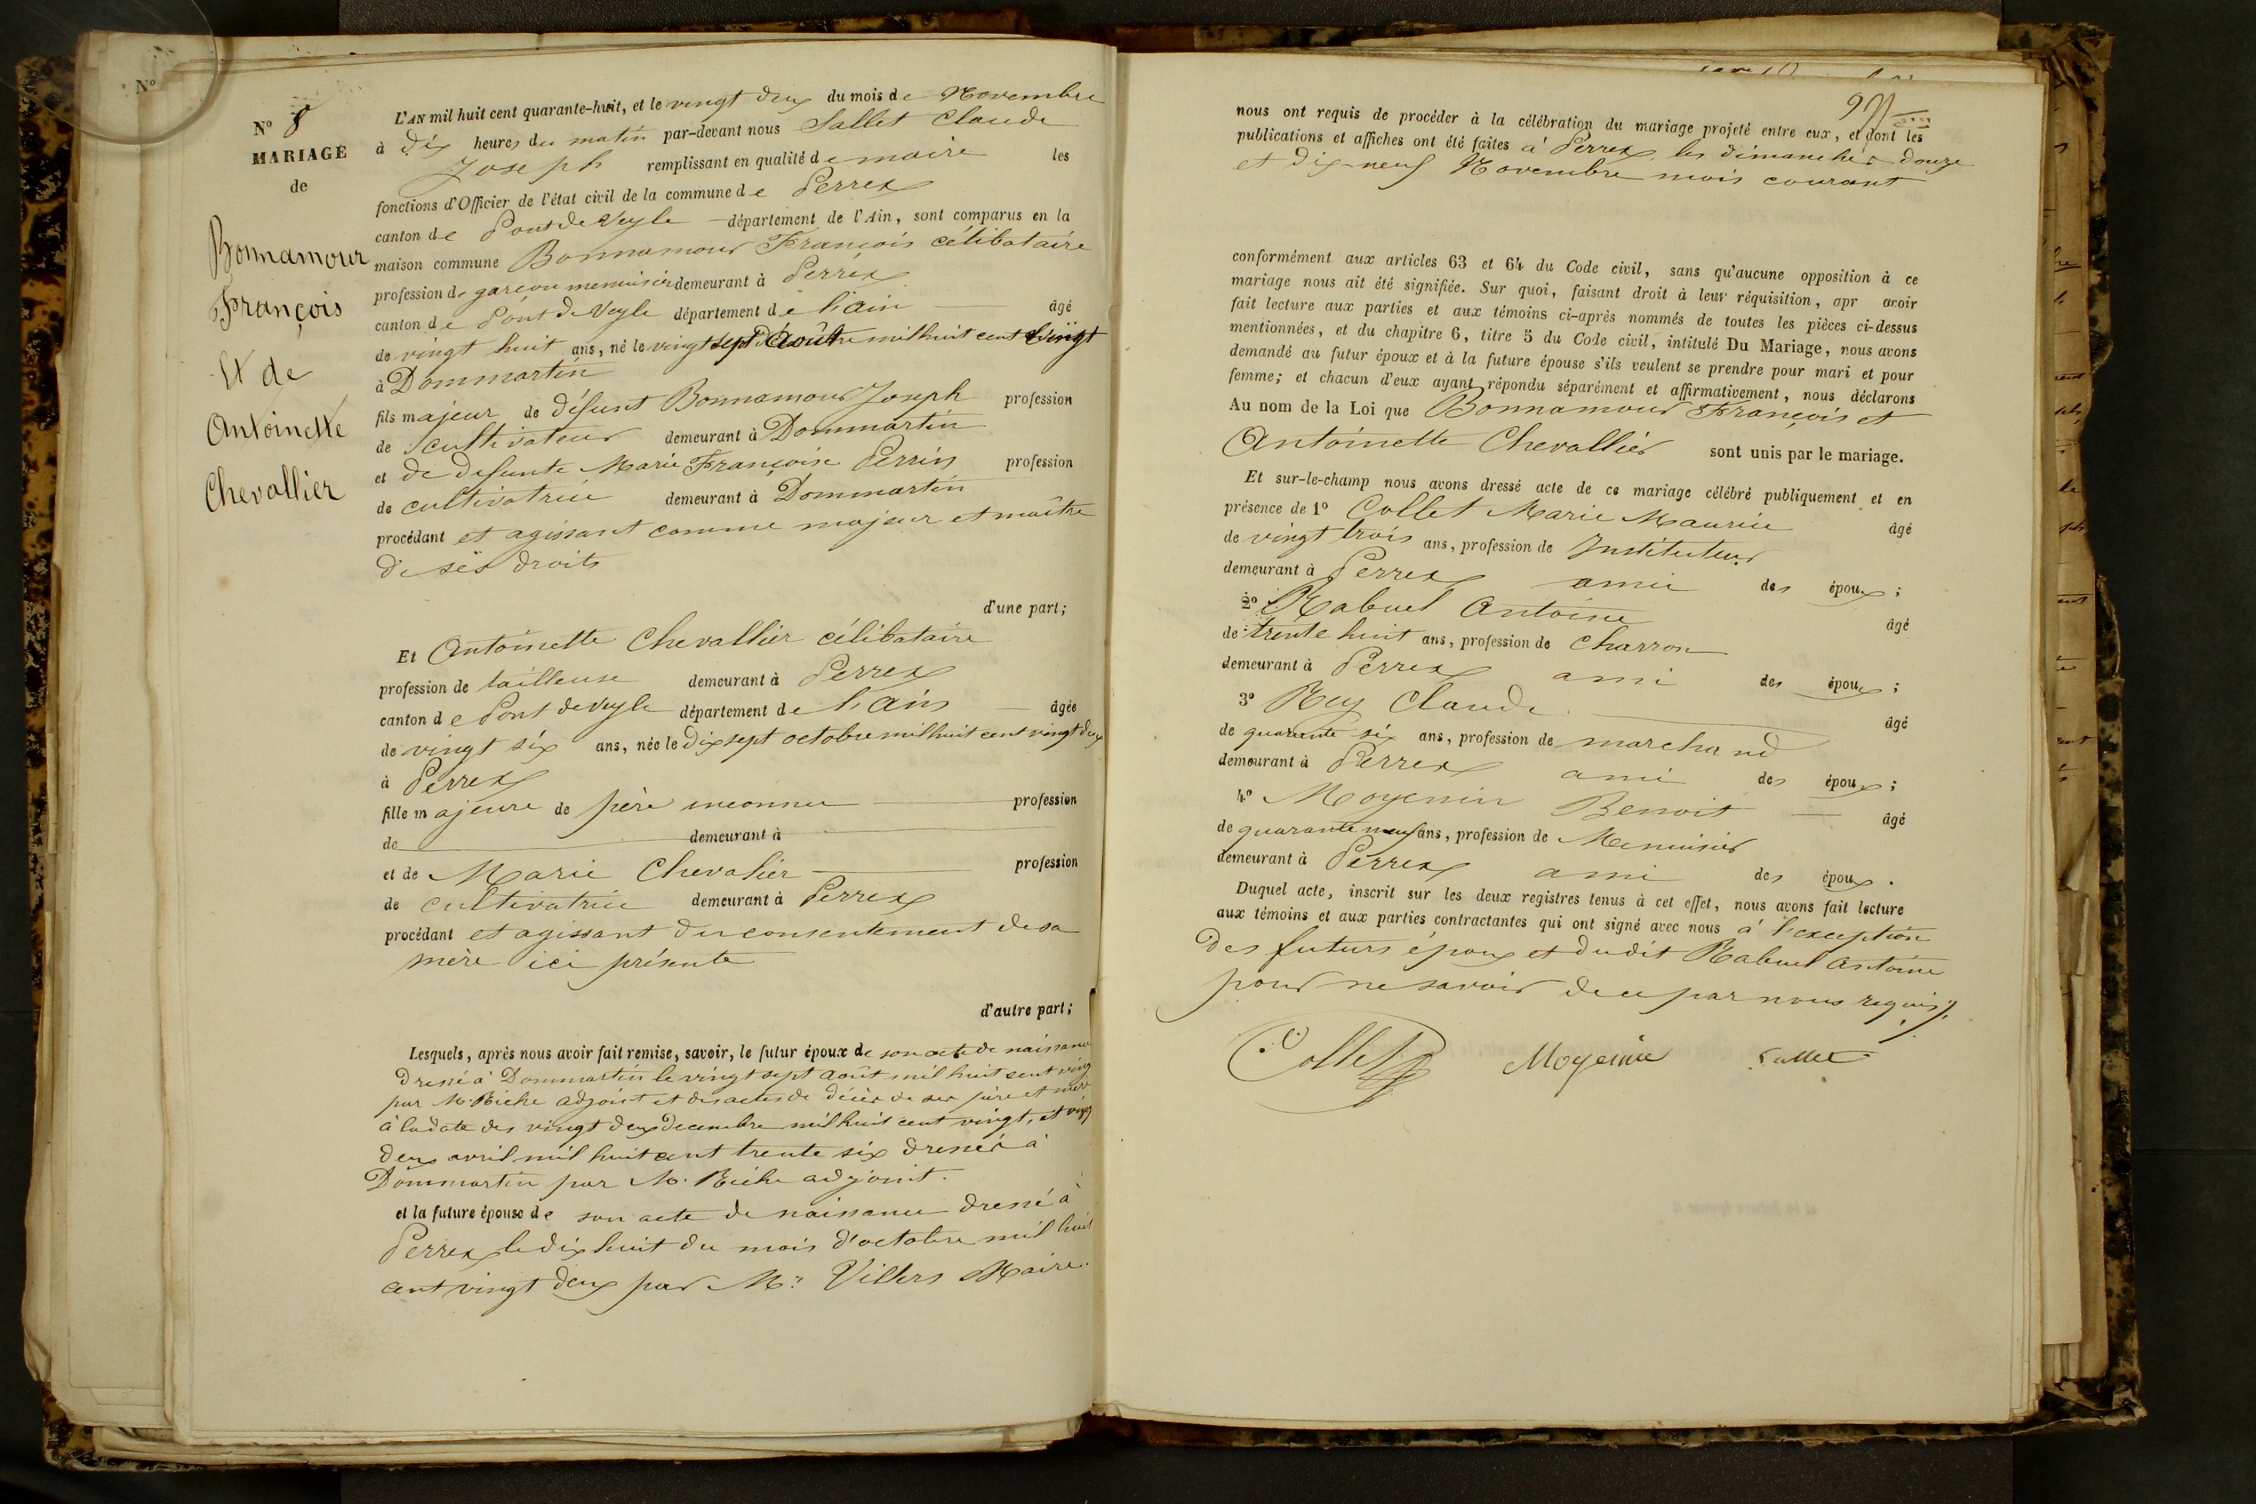 Nº
Nº 8
MARIAGE
de
Bonnamour
François
Et de
Antoinette
Chevallier
L'AN mil huit cent quarante-huit, et le vingt deux du mois de Novembre
à dix heures du matin par-devant nous Sallet Claude
Joseph remplissant en qualité de maire les
fonctions d'Officier de l'état civil de la commune de Perrex
canton de Pont de Veyle département de l'Ain, sont comparus en la
maison commune Bonnamour François célibataire
profession de garçon menuisier demeurant à Perrex
canton de Pont de Veyle département de l'ain âgé
de vingt huit ans, né le vingt sept Août mil huit cent vingt
à Dommartin
fils majeur de défunt Bonnamour Joseph profession
de cultivateur demeurant à Dommartin
et de defunte Marie Françoise Perrin profession
de cultivatrice demeurant à Dommartin
procédant et agissant comme majeur et maître
de ses droits
d'une part;
Et Antoinette Chevallier célibataire
profession de tailleuse demeurant à Perrex
canton de Pont de Veyle département de l'ain âgée
de vingt six ans, née le dix sept octobre mil huit cent vingt deux
à Perrex
fille majeure de père inconnu profession
de demeurant à
et de Marie Chevalier profession
de cultivatrice demeurant à Perrex
procédant et agissant du consentement de sa
mère ici présente
d'autre part;
Lesquels, après nous avoir fait remise, savoir, le futur époux de son acte de naissance
dressé à Dommartin le vingt sept août mil huit cent vingt
par M. Riche adjoint et des actes de décès de ses père et mère
à la date des vingt deux decembre mil huit cent vingt, et vingt
deux avril mil huit cent trente six dressés à
Dommartin par M. Riche adjoint.
et la future épouse de son acte de naissance dressé à
Perrex le dix huit du mois d'octobre mil huit
cent vingt deux par Mr. Villers Maire.
nous ont requis de procéder à la célébration du mariage projeté entre eux, et dont les
publications et affiches ont été faites à Perrex les dimanches douze
et dix-neuf Novembre mois courant
conformément aux articles 63 et 64 du Code civil, sans qu'aucune opposition à ce
mariage nous ait été signifiée. Sur quoi, faisant droit à leur réquisition, apr avoir
fait lecture aux parties et aux témoins ci-après nommés de toutes les pièces ci-dessus
mentionnées, et du chapitre 6, titre 5 du Code civil, intitulé Du Mariage, nous avons
demandé au futur époux et à la future épouse s'ils veulent se prendre pour mari et pour
femme; et chacun d'eux ayant répondu séparément et affirmativement, nous déclarons
Au nom de la Loi que Bonnamour François et
Antoinette Chevallier sont unis par le mariage.
Et sur-le-champ nous avons dressé acte de ce mariage célébré publiquement et en
présence de 1º Collet Marie Maurice âgé
de vingt trois ans, profession de Instituteur
demeurant à Perrex amie des époux;
2º Rabuel Antoine âgé
de trente huit ans, profession de Charron
demeurant à Perrex ami des époux;
3º Rey Claude âgé
de quarante six ans, profession de marchand
demeurant à Perrex ami des époux;
4º Moyemin Benoit âgé
de quarante neuf ans, profession de Menuisier
demeurant à Perrex ami des époux.
Duquel acte, inscrit sur les deux registres tenus à cet effet, nous avons fait lecture
aux témoins et aux parties contractantes qui ont signé avec nous à l'exception
des futurs époux et dudit Rabuel Antoine
pour ne savoir de ce par nous requis.
Collet Moyemin Sallet